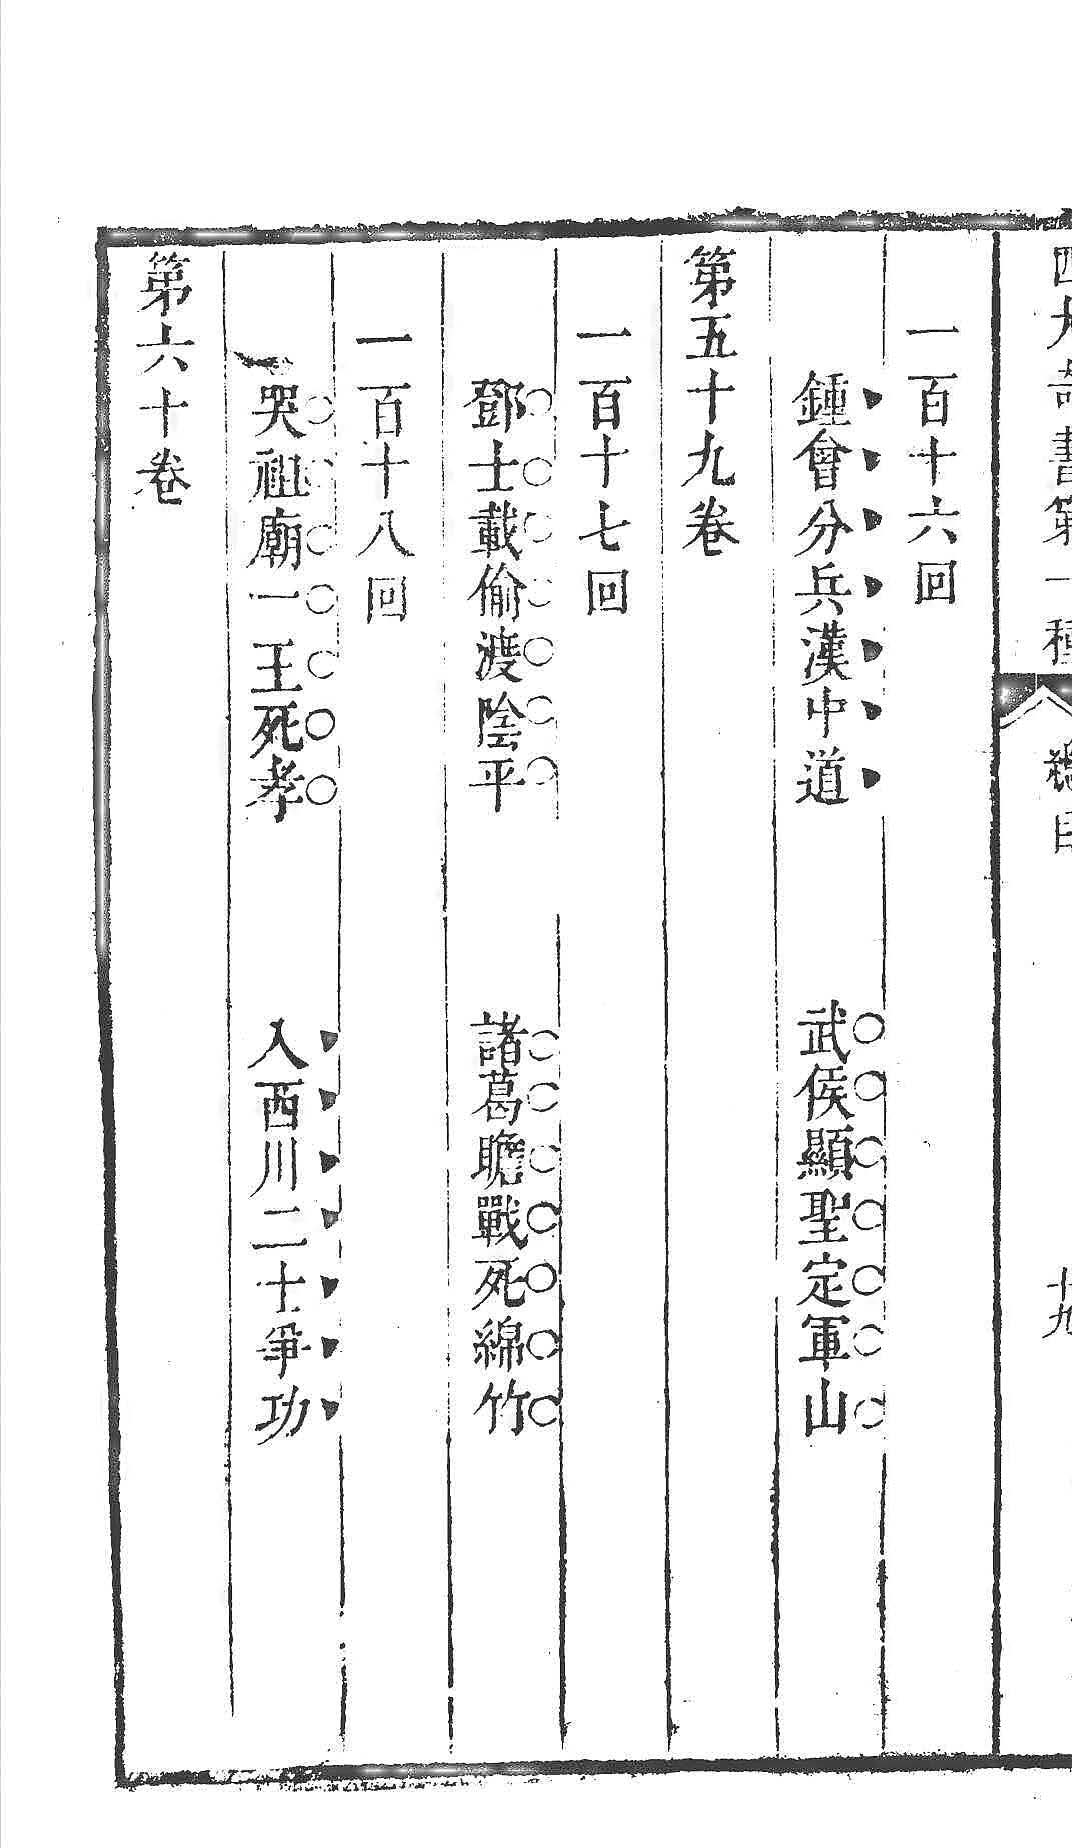 四大奇書第一種 總目 十九
一百十六回
鍾會分兵漢中道 武侯顯聖定軍山
第五十九卷
一百十七回
鄧士載偷渡陰平 諸葛瞻戰死綿竹
一百十八回
哭祖廟一王死孝 入西川二士爭功
第六十卷